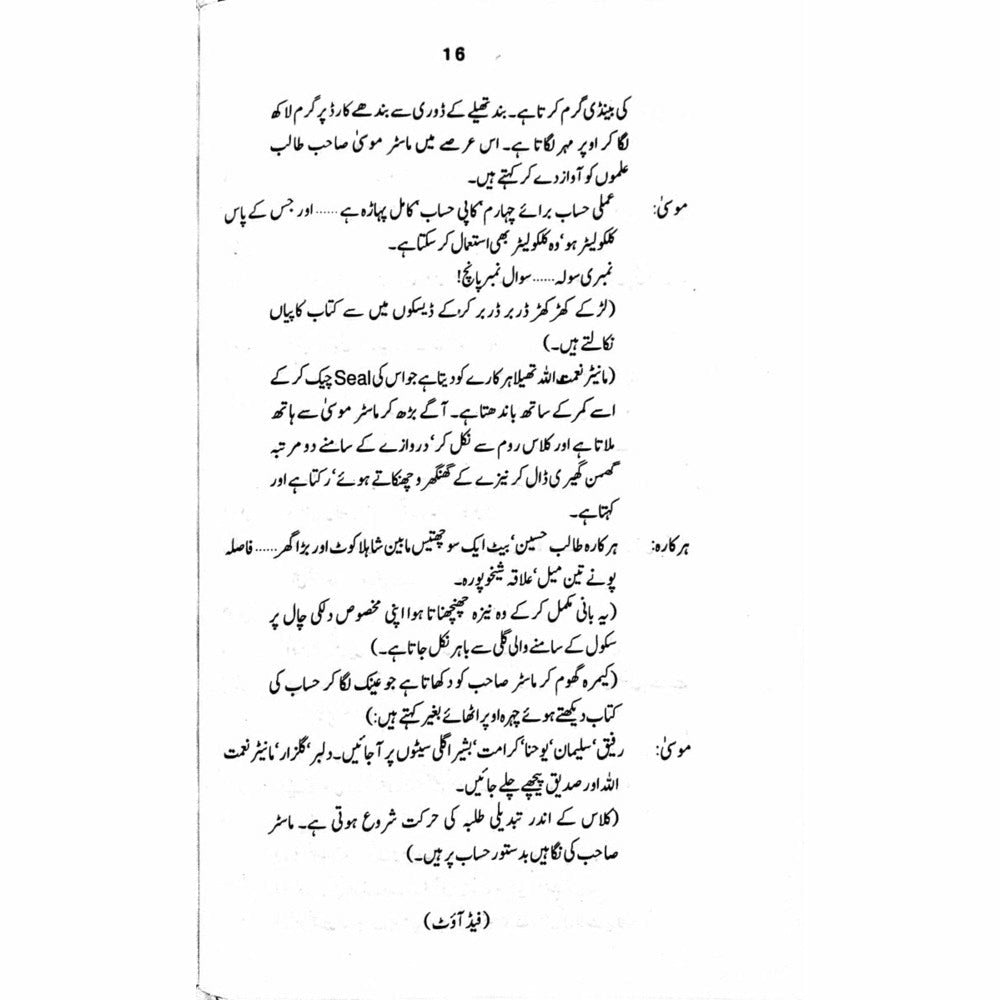 16
کی بینڈی گرم کرتا ہے۔ بند تھیلے کے ڈوری سے بندھے کارڈ پر گرم لاکھ
لگا کر اوپر مہر لگاتا ہے۔ اس عرصے میں ماسٹر موسیٰ صاحب طالب
علموں کو آواز دے کر کہتے ہیں۔
موسیٰ: عملی حساب برائے چہارم‘ کاپی حساب‘ کامل پہاڑہ ہے...... اور جس کے پاس
کلکولیٹر ہو‘ وہ کلکولیٹر بھی استعمال کر سکتا ہے۔
نمبری سولہ...... سوال نمبر پانچ!
(لڑکے کھڑ کھڑ ڈر بر ڈر بر کرکے ڈیسکوں میں سے کتاب کاپیاں
نکالتے ہیں۔)
(مانیٹر نعمت اللہ تھیلا ہرکارے کو دیتا ہے جو اس کی Seal چیک کر کے
اسے کمر کے ساتھ باندھتا ہے۔ آگے بڑھ کر ماسٹر موسیٰ سے ہاتھ
ملاتا ہے اور کلاس روم سے نکل کر‘ دروازے کے سامنے دو مرتبہ
گھمن گھیری ڈال کر نیزے کے گھنگھرو چھنکاتے ہوئے‘ رکتا ہے اور
کہتا ہے۔
ہرکارہ: ہرکارہ طالب حسین‘ بیٹ ایک سو چھتیس مابین شاہلا کوٹ اور بڑا گھر...... فاصلہ
پونے تین میل‘ علاقہ شیخوپورہ۔
(یہ بانی مکمل کر کے وہ نیزہ چھنچھناتا ہوا اپنی مخصوص دلکی چال پر
سکول کے سامنے والی گلی سے باہر نکل جاتا ہے۔)
(کیمرہ گھوم کر ماسٹر صاحب کو دکھاتا ہے جو عینک لگا کر حساب کی
کتاب دیکھتے ہوئے چہرہ اوپر اٹھائے بغیر کہتے ہیں:)
موسیٰ: رفیق‘ سلیمان‘ یوحنا‘ کرامت‘ بشیر اگلی سیٹوں پر آ جائیں۔ دلبر‘ گلزار‘ مانیٹر نعمت
اللہ اور صدیق پیچھے چلے جائیں۔
(کلاس کے اندر تبدیلی طلبہ کی حرکت شروع ہوتی ہے۔ ماسٹر
صاحب کی نگاہیں بدستور حساب پر ہیں۔)
(فیڈ آؤٹ)